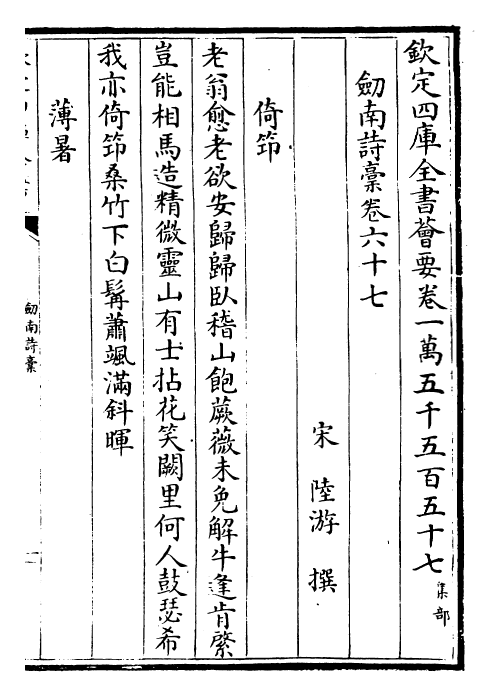 欽定四庫全書薈要卷一萬五千五百五十七集部
劒南詩稾卷六十七
宋 陸游 撰
倚筇
老翁愈老欲安歸歸臥稽山飽蕨薇未免解牛逢肯綮
豈能相馬造精微靈山有士拈花笑闕里何人鼓瑟希
我亦倚筇桑竹下白髯蕭颯滿斜暉
薄暑
劒南詩稾